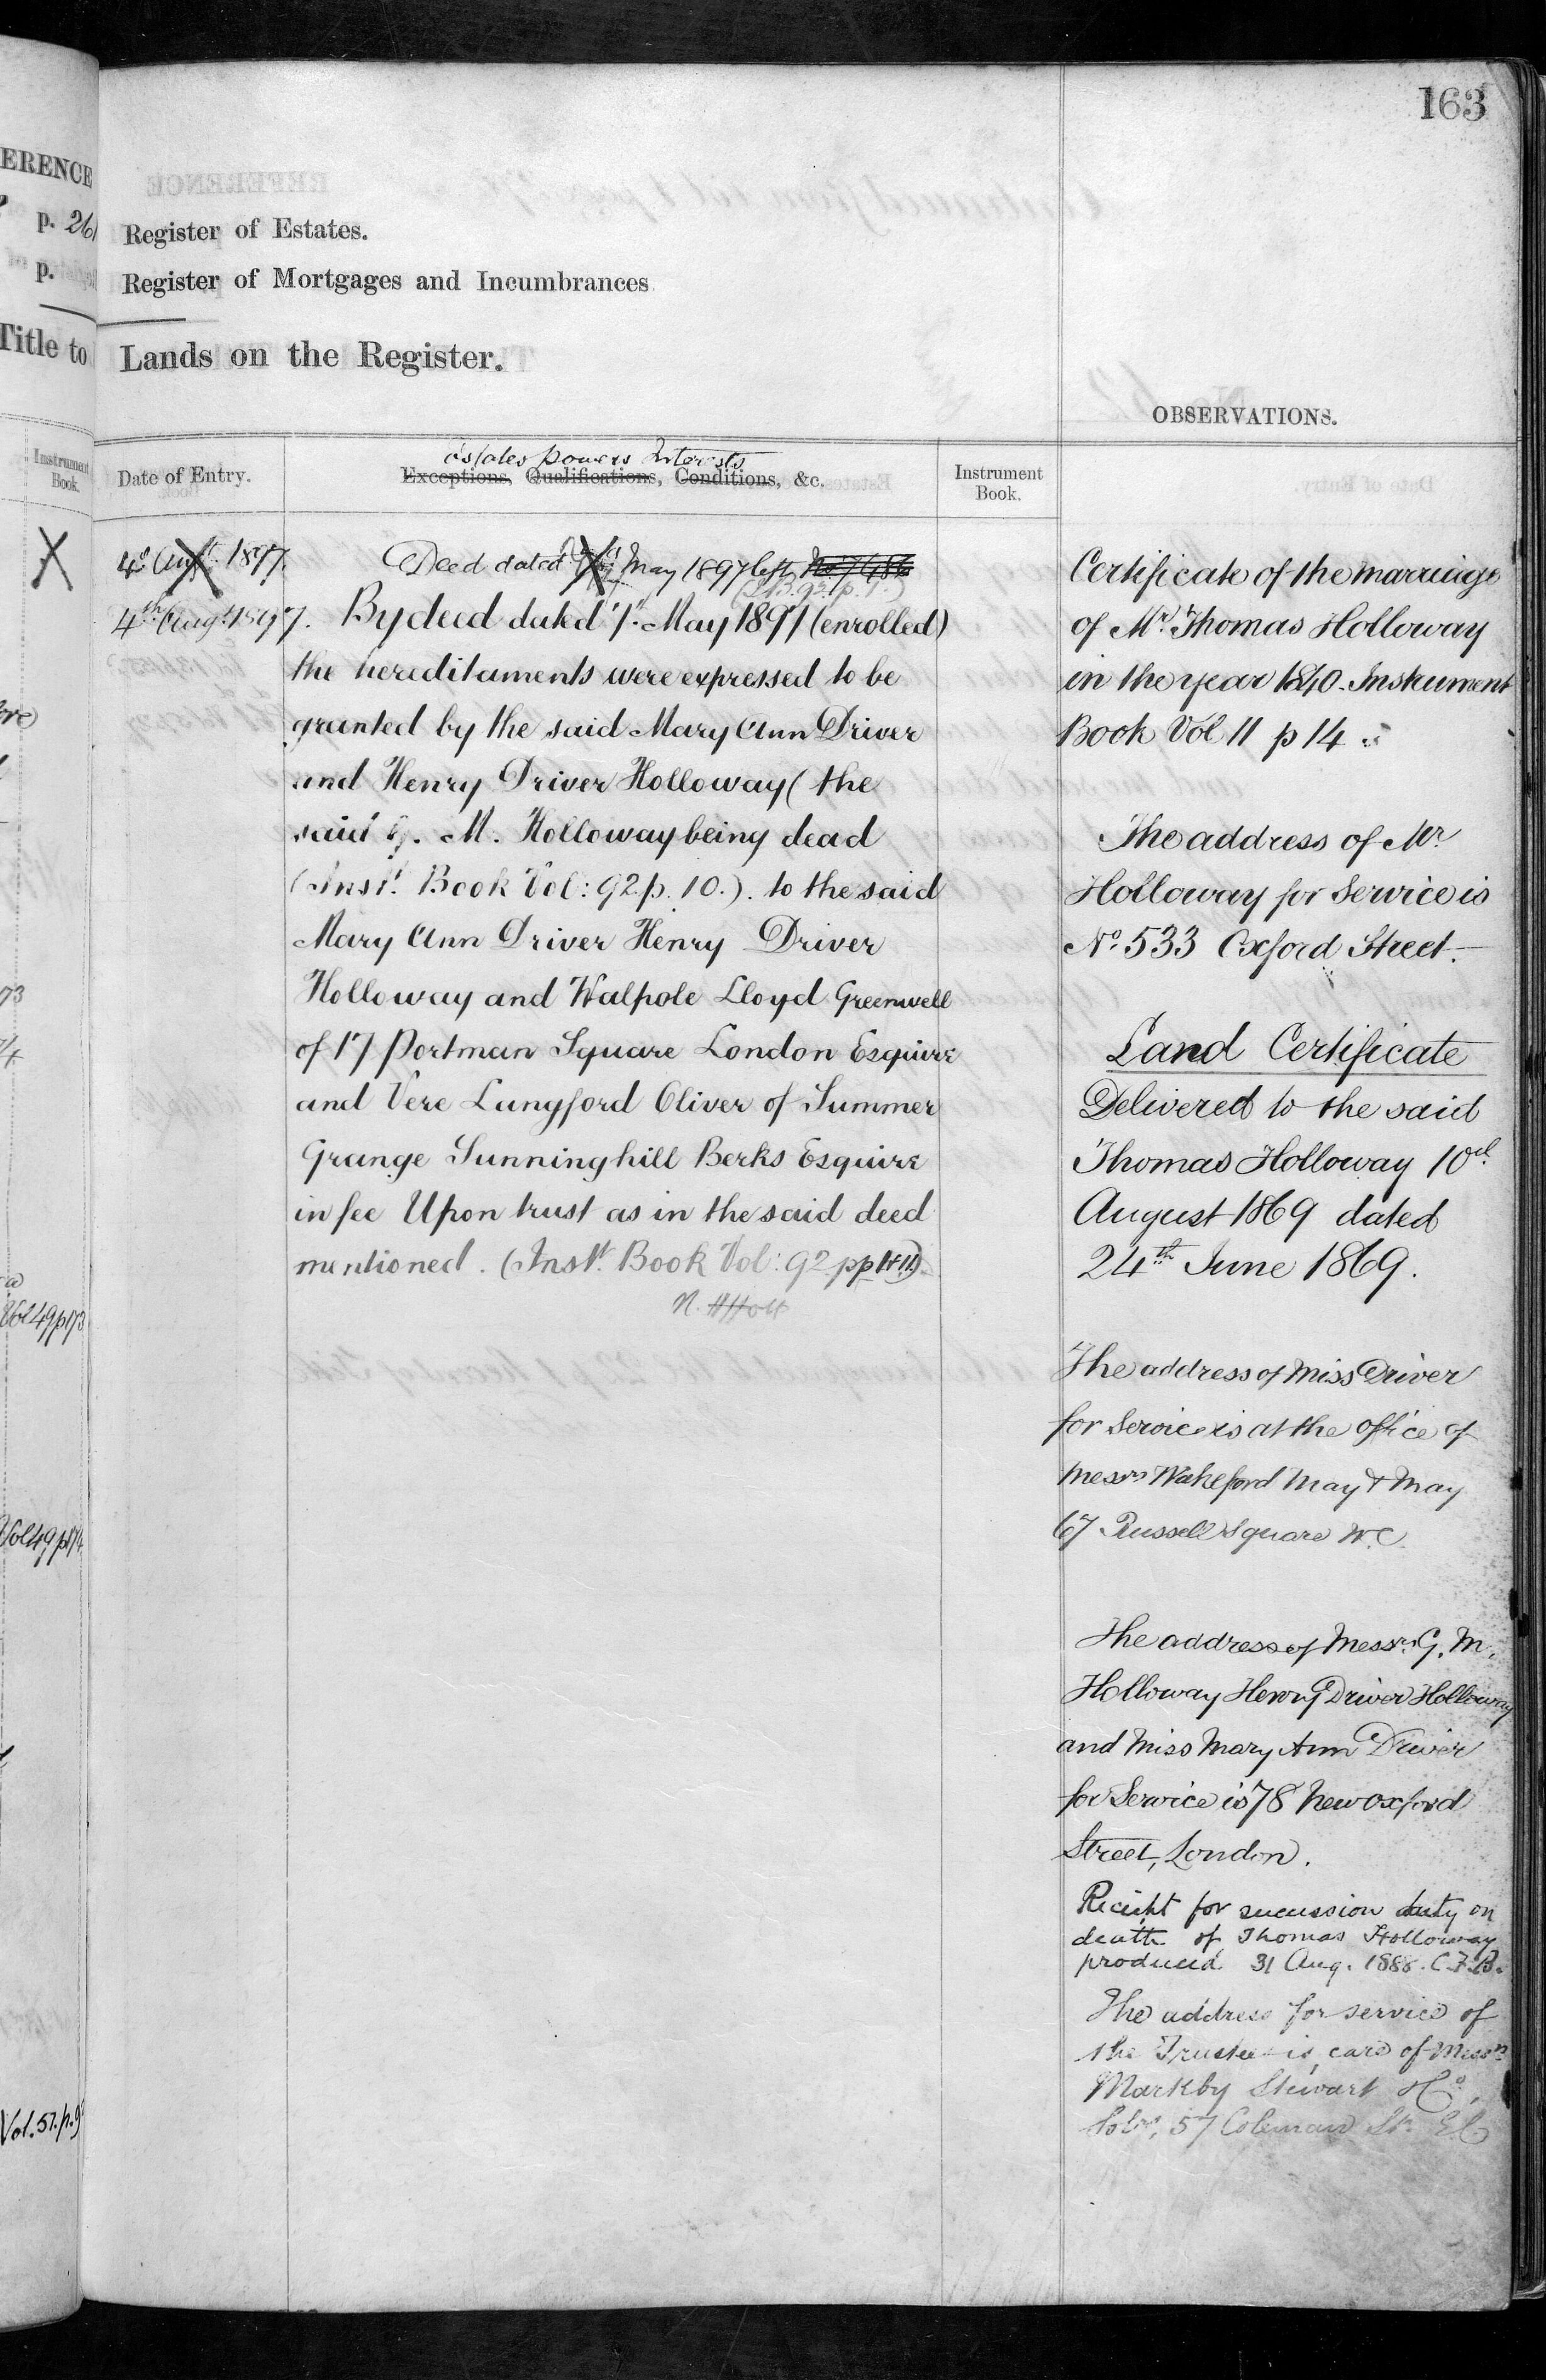 163
ERENCE
p. 261
p.
Title to
Instrument
Book.
Vol 49 p 173
Vol 49 p 174
Vol. 57. p. 9
Register of Estates.
Register of Mortgages and Incumbrances
Lands on the Register.
OBSERVATIONS.
Date of Entry.
estates powers Interests
Exceptions, Qualifications, Conditions, &c.
Instrument
Book.
4th Augt. 1897.
Deed dated May 1897 left No 7486
4th Aug: 1897. By deed dated 7th May 1897 (enrolled)
the hereditaments were expressed to be
granted by the said Mary Ann Driver
and Henry Driver Holloway (the
said G. M. Holloway being dead
(Inst. Book Vol: 92 p. 10.). to the said
Mary Ann Driver Henry Driver
Holloway and Walpole Lloyd Greenwell
of 17 Portman Square London Esquire
and Vere Langford Oliver of Summer
Grange Sunninghill Berks Esquire
in fee Upon trust as in the said deed
mentioned. (Inst. Book Vol: 92 pp 1+11)
Certificate of the marriage
of Mr. Thomas Holloway
in the year 1840. Instrument
Book Vol 11 p 14
The address of Mr
Holloway for Service is
No. 533 Oxford Street.
Land Certificate
Delivered to the said
Thomas Holloway 10th
August 1869 dated
24th June 1869.
The address of Miss Driver
for Service is at the office of
Messrs Wakeford May & May
67 Russell Square W.C.
The address of Messrs G. M.
Holloway Henry Driver Holloway
and Miss Mary Ann Driver
for Service is 78 New Oxford
Street, London.
Receipt for succession duty on
death of Thomas Holloway
produced 31 Aug. 1888. C.F.B.
The address for service of
the Trustees is care of Messrs
Markby Stewart & Co.,
Solrs, 57 Coleman St. E.C